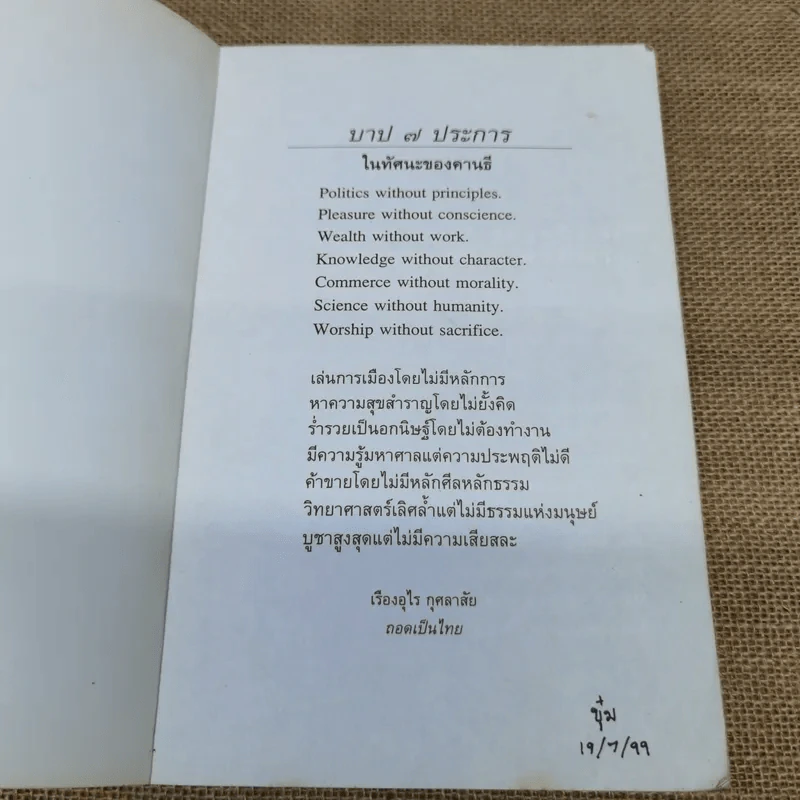 บาป ๗ ประการ
ในทัศนะของคานธี
Politics without principles.
Pleasure without conscience.
Wealth without work.
Knowledge without character.
Commerce without morality.
Science without humanity.
Worship without sacrifice.
เล่นการเมืองโดยไม่มีหลักการ
หาความสุขสำราญโดยไม่ยั้งคิด
ร่ำรวยเป็นอกนิษฐ์โดยไม่ต้องทำงาน
มีความรู้มหาศาลแต่ความประพฤติไม่ดี
ค้าขายโดยไม่มีหลักศีลหลักธรรม
วิทยาศาสตร์เลิศล้ำแต่ไม่มีธรรมแห่งมนุษย์
บูชาสูงสุดแต่ไม่มีความเสียสละ
เรืองอุไร กุศลาสัย
ถอดเป็นไทย
19/7/99